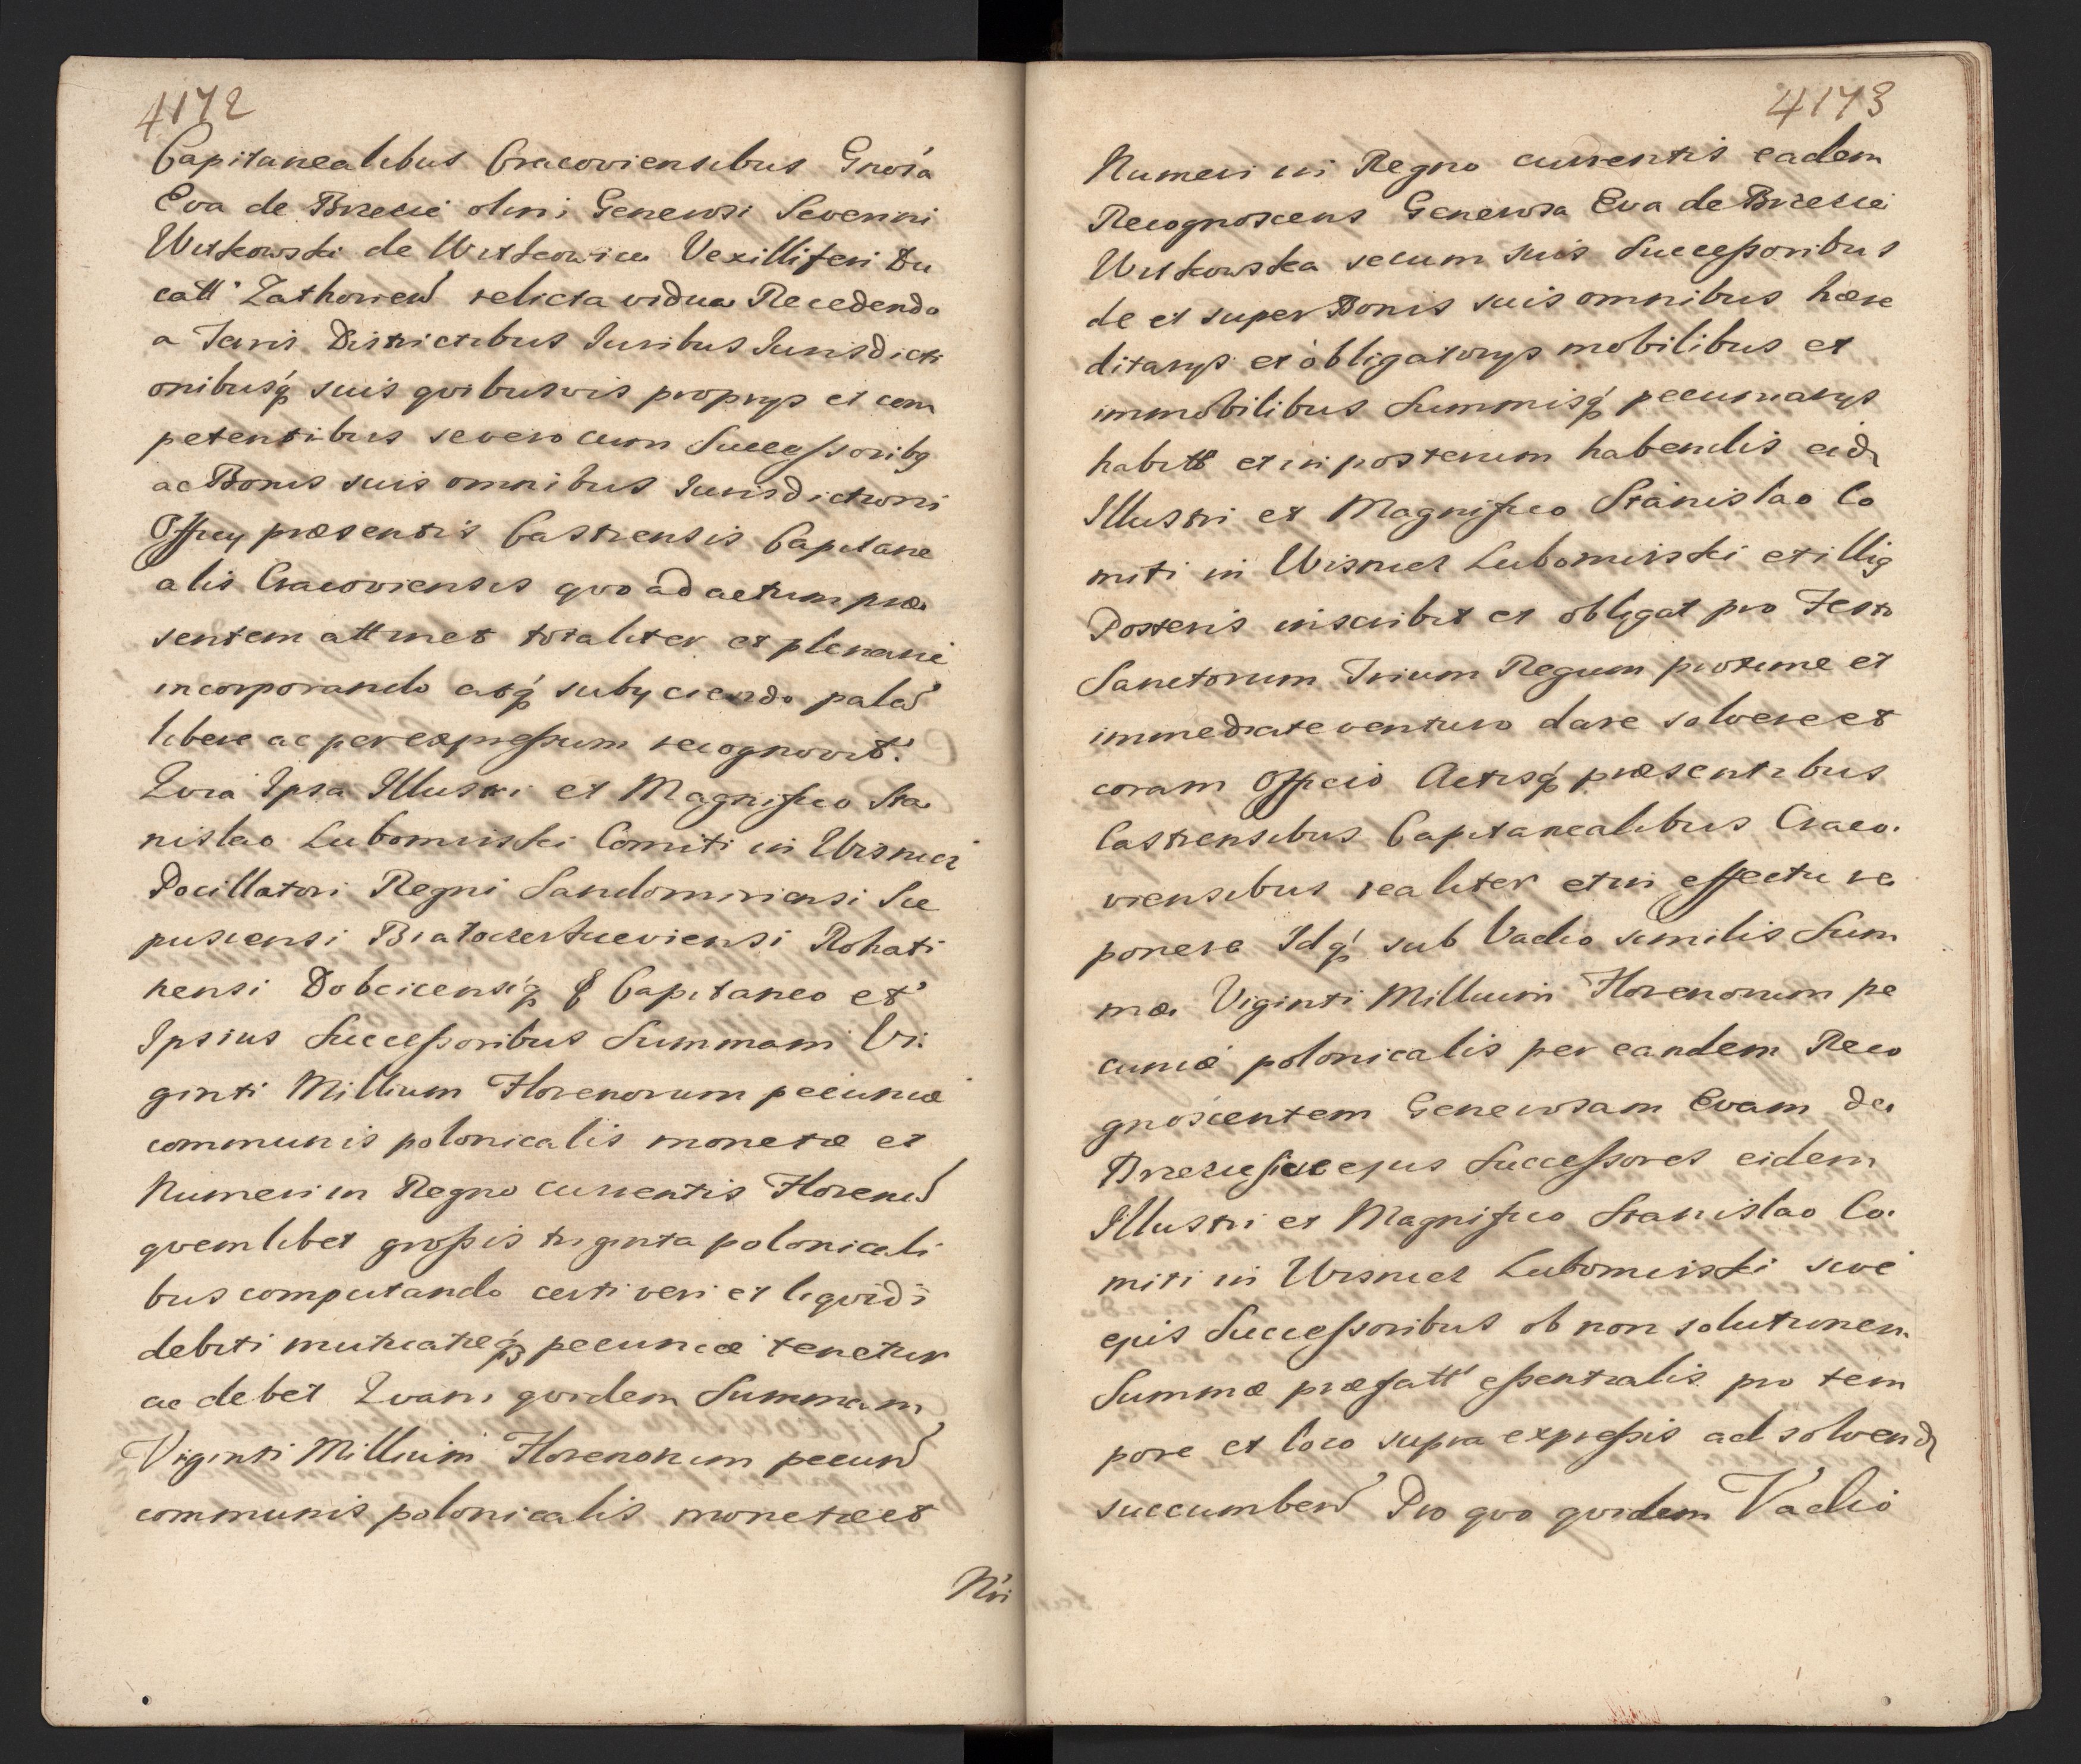 4172
Capitanealibus Cracoviensibus Gnosa
Eva de Brzezie olim Generosi Severini
Witkowski de Witkowice Vexilliferi Du
catt Zathorien relicta vidua Recedendo
a Terris Districtibus Iuribus Iurisdicti
onibusq suis qvibusvis proprys et com
petentibus se vero cum Successoribq
ac Bonis suis omnibus Iurisdictioni
Officy præsentis Castrensis Capitane
alis Cracoviensis qvo ad actum præ
sentem attinet totaliter et plenarie
incorporando atq subyciendo palã
libere ac per expressum recognovit:
Qvia Ipsa Illustri et Magnifico Sta
nislao Lubomirski Comiti in Wisnicz
Pocillatori Regni Sandomiriensi Sce
pusiensi Białocerkieviensi Rohati
nensi Dobcicensiq & Capitaneo et
Ipsius Successoribus Summam Vi
ginti Millium Florenorum pecuniæ
communis polonicalis monetæ et
Numeri in Regno currentis Florenũ
qvemlibet grossis triginta polonicali
bus computando certi veri et liqvidi
debiti mutuatæq pecuniæ tenetur
ac debet Qvam qvidem Summam
Viginti Millium Florenorum pecuñ
communis polonicalis monetæ et
Nri
4173
Numeri in Regno currentis eadem
Recognoscens Generosa Eva de Brzezie
Witkowska secum suis Successoribus
de et super Bonis suis omnibus hære
ditarys et obligatorys mobilibus et
immobilibus Summisq pecuniarys
habitt et in posterum habendis eid
Illustri et Magnifico Stanislao Co
miti in Wisnicz Lubomirski et illiq
Posteris inscribit et obligat pro Festo
Sanctorum Trium Regum proxime et
immediate venturo dare solvere et
coram Officio Actisq præsentibus
Castrensibus Capitanealibus Craco
viensibus realiter et in effectu re
ponere Idq sub Vadio similis Sum
mæ Viginti Millium Florenorum pe
cuniæ polonicalis per eandem Reco
gnoscentem Generosam Evam de
Brzezie sive ejus Successores eidem
Illustri et Magnifico Stanislao Co
miti in Wisnicz Lubomirski sive
ejus Successoribus ob non solutionem
Summæ præfatt essentialis pro tem
pore et loco supra expressis ad solvend
succumbeñ Pro qvo qvidem Vadio